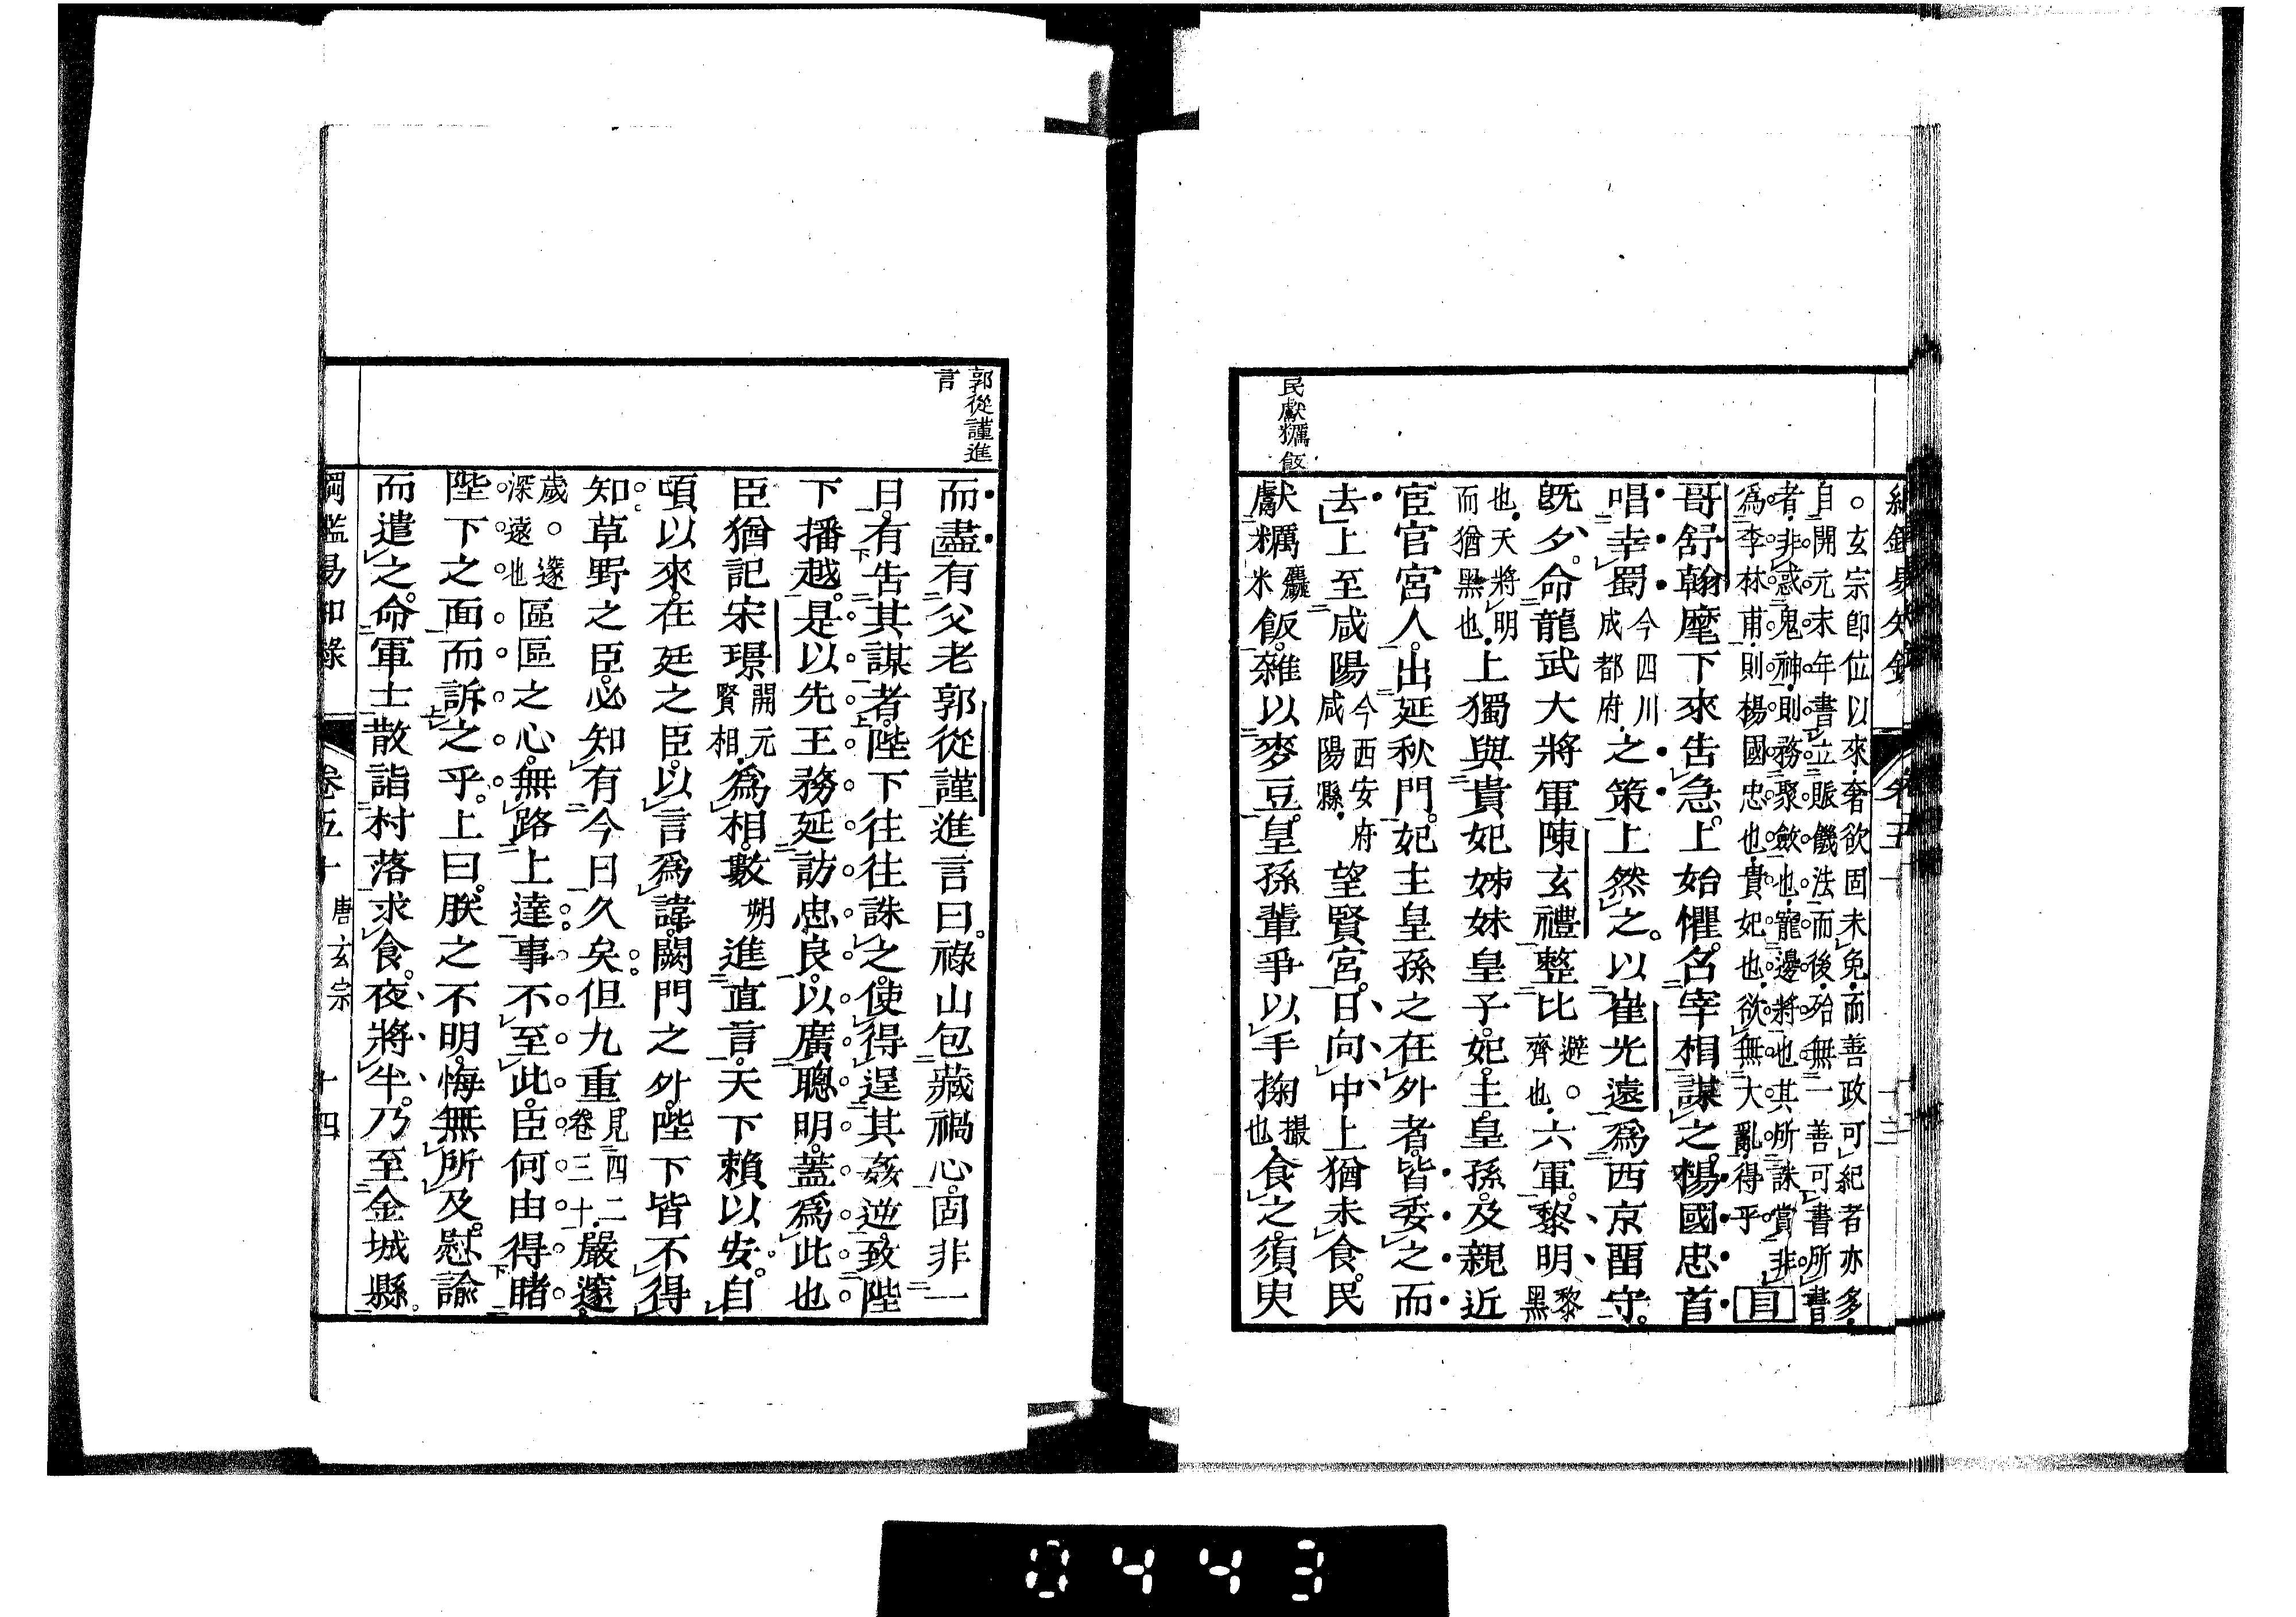 民獻糲飯
○玄宗卽位以來奢欲固未免而善政可紀者亦多
自開元末年書立賑饑法而後殆無一善可書所書
者非惑鬼神則務聚斂也寵邊將也其所誅賞非
爲李林甫則楊國忠也貴妃也欲無大亂得乎 目
哥舒翰麾下來告急上始懼召宰相謀之楊國忠首
唱幸蜀今四川成都府之策上然之以崔光遠爲西京畱守
旣夕命龍武大將軍陳玄禮整比避○齊也六軍黎明黎黑
也天將明而猶黑也上獨與貴妃姊妹皇子妃主皇孫及親近
宦官宮人出延秋門妃主皇孫之在外者皆委之而
去上至咸陽今西安府咸陽縣望賢宮日向中上猶未食民
獻糲麤米飯雜以麥豆皇孫輩爭以手掬撮也食之須臾
郭從謹進言
而盡有父老郭從謹進言曰祿山包藏禍心固非一
日有告其謀者陛下往往誅之使得逞其姦逆致陛
下播越是以先王務延訪忠良以廣聰明蓋爲此也
臣猶記宋璟開元賢相爲相數朔進直言天下賴以安自
頃以來在廷之臣以言爲諱闕門之外陛下皆不得
知草野之臣必知有今日久矣但九重見四二卷三十嚴邃
歲○邃深遠也區區之心無路上達事不至此臣何由得睹
陛下之面而訴之乎上曰朕之不明悔無所及慰諭
而遣之命軍士散詣村落求食夜將半乃至金城縣
綱鑑易知錄 卷五十 唐玄宗 十四
0443